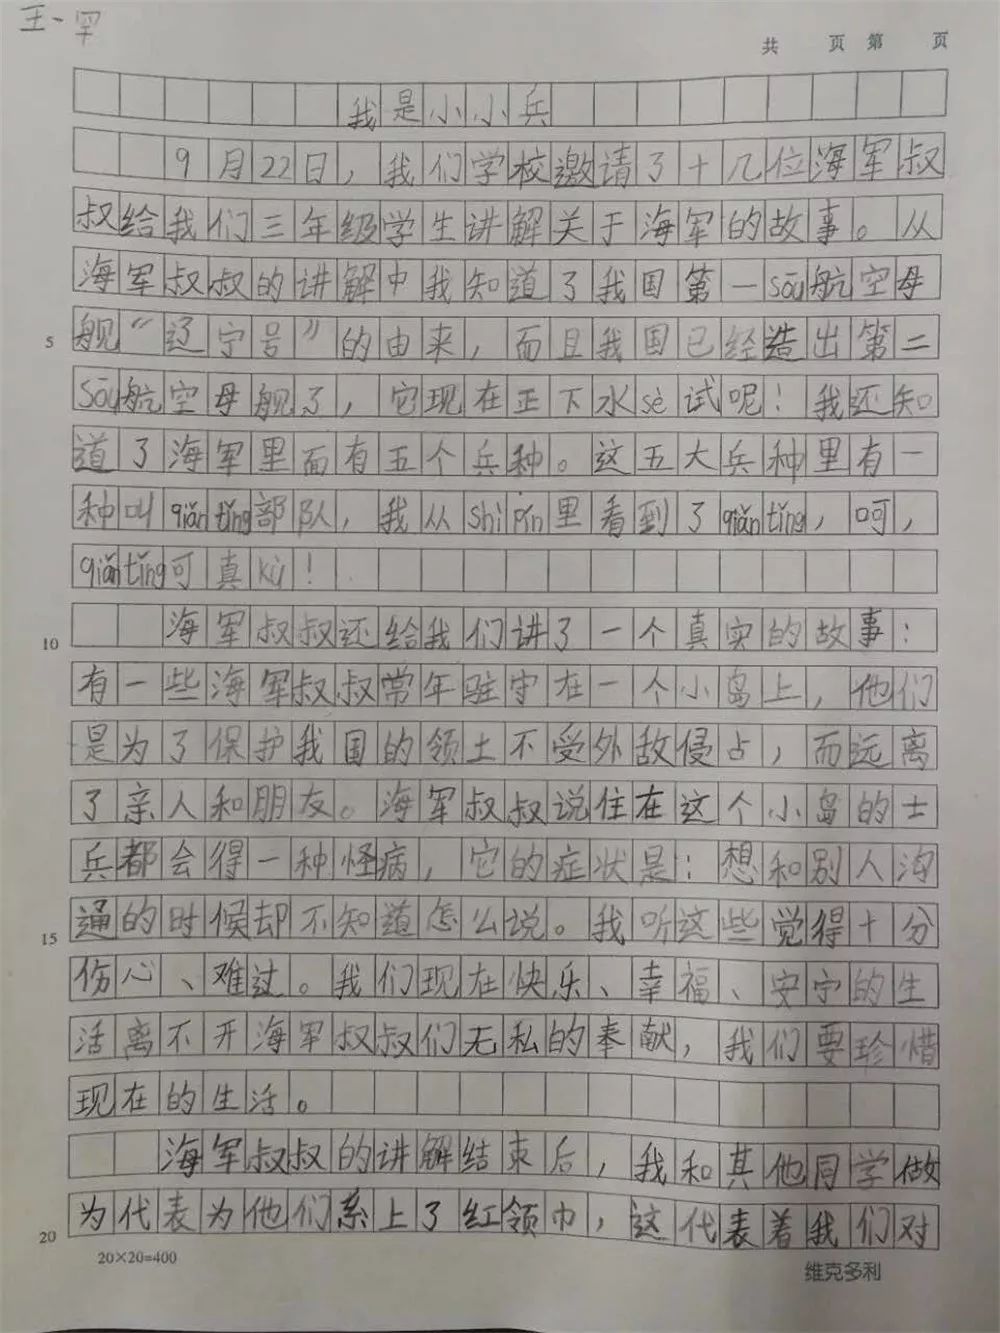 王一罕
共 页 第 页
我是小小兵
9月22日，我们学校邀请了十几位海军叔
叔给我们三年级学生讲解关于海军的故事。从
海军叔叔的讲解中我知道了我国第一sōu航空母
5 舰“辽宁号”的由来，而且我国已经造出第二
sōu航空母舰了，它现在正下水sè试呢！我还知
道了海军里面有五个兵种。这五大兵种里有一
种叫qiǎntǐng部队，我从shìpín里看到了qiǎntǐng，呵，
qiǎntǐng可真kù！
10 海军叔叔还给我们讲了一个真实的故事：
有一些海军叔叔常年驻守在一个小岛上，他们
是为了保护我国的领土不受外敌侵占，而远离
了亲人和朋友。海军叔叔说住在这个小岛的士
兵都会得一种怪病，它的症状是：想和别人沟
15 通的时候却不知道怎么说。我听这些觉得十分
伤心、难过。我们现在快乐、幸福、安宁的生
活离不开海军叔叔们无私的奉献，我们要珍惜
现在的生活。
海军叔叔的讲解结束后，我和其他同学做
20 为代表为他们系上了红领巾，这代表着我们对
20×20=400
维克多利